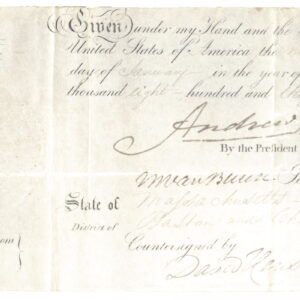 Given under my Hand and the
United States of America the
day of January in the year of
thousand eight - hundred and
Andrew
By the President
M Van Buren
State of Massachusetts
District of Boston and
Countersigned by
David
om